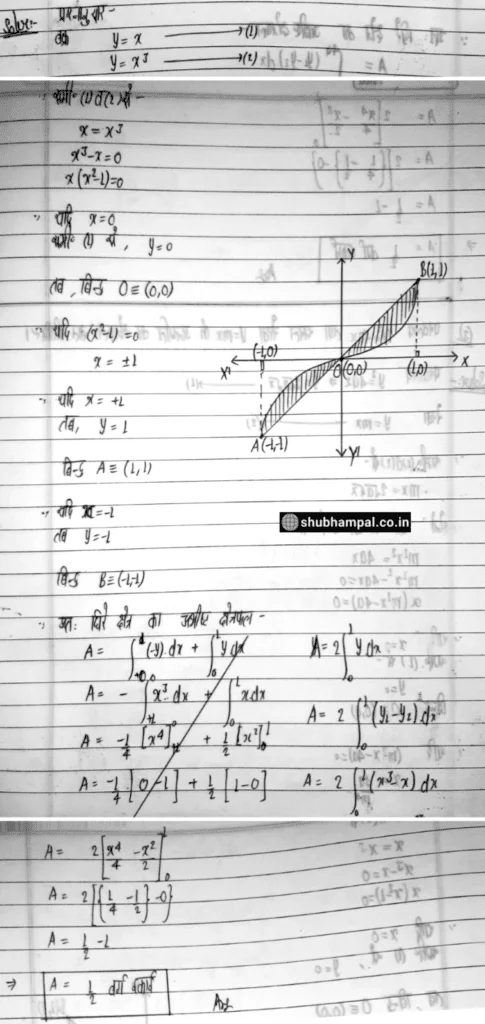 Solve:- प्रश्नानुसार -
वक्र y = x → (1)
y = x³ → (2)
∴ समी० (1) व (2) से -
x = x³
x³-x=0
x(x²-1)=0
∴ यदि x=0
समी० (1) से, y=0
तब, बिन्दु O ≡ (0,0)
∴ यदि (x²-1)=0
x = ±1
∴ यदि x = +1
तब, y = 1
बिन्दु A ≡ (1,1)
∴ यदि x=-1
तब y=-1
बिन्दु B≡(-1,-1)
Y
B(1,1)
(-1,0)
X' O(0,0) (1,0) X
A(-1,-1)
Y'
shubhampal.co.in
∴ अतः घिरे क्षेत्र का अभीष्ट क्षेत्रफल -
A = ∫(-y).dx + ∫₀¹ y dx
A = 2∫₀¹ y dx
A = - ∫ x³.dx + ∫₀¹ x.dx
A = 2 ∫₀¹ (y₁-y₂).dx
A = -1/4 [x⁴] + 1/2 [x²]₀¹
A = -1/4 [0-1] + 1/2 [1-0]
A = 2 ∫₀¹ (x³-x) dx
A = 2[x⁴/4 - x²/2]₀¹
A = 2[{1/4 - 1/2} - 0}
A = 1/2 - 1
⇒ A = 1/2 वर्ग इकाई
Ans